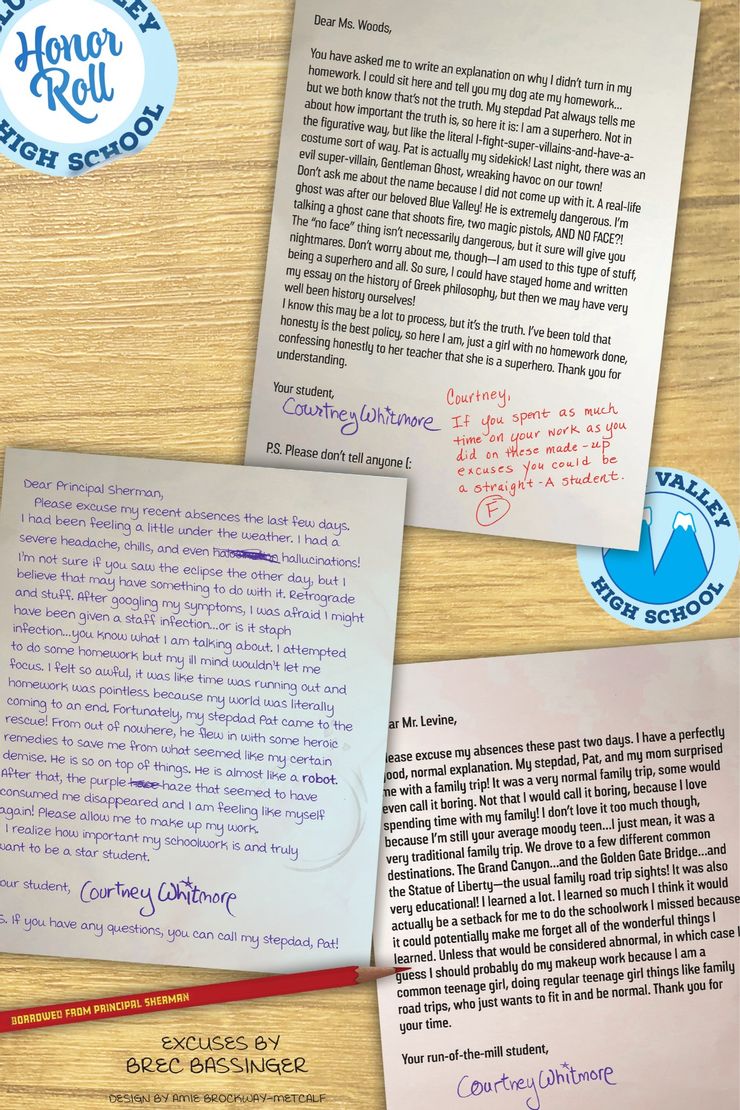 Honor
Roll
HIGH SCHOOL
Dear Ms. Woods,
You have asked me to write an explanation on why I didn't turn in my
homework. I could sit here and tell you my dog ate my homework...
but we both know that's not the truth. My stepdad Pat always tells me
about how important the truth is, so here it is: I am a superhero. Not in
the figurative way, but like the literal I-fight-super-villains-and-have-a-
costume sort of way. Pat is actually my sidekick! Last night, there was an
evil super-villain, Gentleman Ghost, wreaking havoc on our town!
Don't ask me about the name because I did not come up with it. A real-life
ghost was after our beloved Blue Valley! He is extremely dangerous. I'm
talking a ghost cane that shoots fire, two magic pistols, AND NO FACE?!
The "no face" thing isn't necessarily dangerous, but it sure will give you
nightmares. Don't worry about me, though—I am used to this type of stuff,
being a superhero and all. So sure, I could have stayed home and written
my essay on the history of Greek philosophy, but then we may have very
well been history ourselves!
I know this may be a lot to process, but it's the truth. I've been told that
honesty is the best policy, so here I am, just a girl with no homework done,
confessing honestly to her teacher that she is a superhero. Thank you for
understanding.
Your student,
Courtney Whitmore
P.S. Please don't tell anyone (:
Courtney,
If you spent as much
time on your work as you
did on these made-up
excuses you could be
a straight-A student.
F
VALLEY
HIGH SCHOOL
Dear Principal Sherman,
Please excuse my recent absences the last few days.
I had been feeling a little under the weather. I had a
severe headache, chills, and even hallucinations!
I'm not sure if you saw the eclipse the other day, but I
believe that may have something to do with it. Retrograde
and stuff. After googling my symptoms, I was afraid I might
have been given a staff infection...or is it staph
infection...you know what I am talking about. I attempted
to do some homework but my ill mind wouldn't let me
focus. I felt so awful, it was like time was running out and
homework was pointless because my world was literally
coming to an end. Fortunately, my stepdad Pat came to the
rescue! From out of nowhere, he flew in with some heroic
remedies to save me from what seemed like my certain
demise. He is so on top of things. He is almost like a robot.
After that, the purple haze that seemed to have
consumed me disappeared and I am feeling like myself
again! Please allow me to make up my work.
I realize how important my schoolwork is and truly
want to be a star student.
our student,
Courtney Whitmore
S. If you have any questions, you can call my stepdad, Pat!
ar Mr. Levine,
ease excuse my absences these past two days. I have a perfectly
ood, normal explanation. My stepdad, Pat, and my mom surprised
me with a family trip! It was a very normal family trip, some would
even call it boring. Not that I would call it boring, because I love
spending time with my family! I don't love it too much though,
because I'm still your average moody teen...I just mean, it was a
very traditional family trip. We drove to a few different common
destinations. The Grand Canyon...and the Golden Gate Bridge...and
the Statue of Liberty—the usual family road trip sights! It was also
very educational! I learned a lot. I learned so much I think it would
actually be a setback for me to do the schoolwork I missed because
it could potentially make me forget all of the wonderful things I
learned. Unless that would be considered abnormal, in which case I
guess I should probably do my makeup work because I am a
common teenage girl, doing regular teenage girl things like family
road trips, who just wants to fit in and be normal. Thank you for
your time.
Your run-of-the-mill student,
Courtney Whitmore
BORROWED FROM PRINCIPAL SHERMAN
EXCUSES BY
BREC BASSINGER
DESIGN BY AMIE BROCKWAY-METCALF